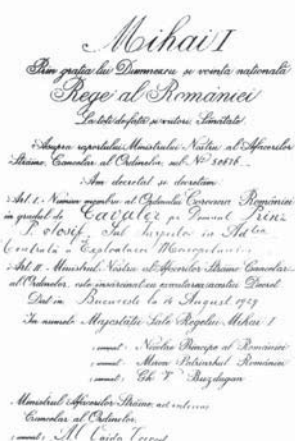 Mihai I
Prin grația lui Dumnezeu și voința națională
Rege al României
La toți de față și viitori, Sănătate
Asupra raportului Ministrului Nostru al Afacerilor
Străine, Cancelar al Ordinelor, sub No 50616
Am decretat și decretăm
Art. I. Numim membru al Ordinului Coroana României
în gradul de Cavaler pe Domnul Prinz
P. Iosif, in Ad-ția
Centrală a Exploatarea Monopolurilor
Art. II. Ministrul Nostru al Afacerilor Străine Cancelar
al Ordinelor, este însărcinat cu executarea acestui Decret
Dat în București la August 1929
În numele Majestății Sale Regelui Mihai I
semnat: Nicolae Principe al României
semnat: Miron Patriarhul României
semnat: Gh. V. Buzdugan
Ministrul Afacerilor Străine, ad-interim
Cancelar al Ordinelor,
semnat: Al Vaida Voevod